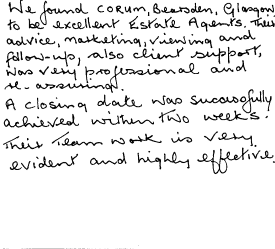 We found CORUM, Bearsden, Glasgow,
to be excellent Estate Agents. Their
advice, marketing, viewing and
follow-up, also client support,
was very professional and
re-assuring.
A closing date was successfully
achieved within two weeks.
Their Team work is very
evident and highly effective.